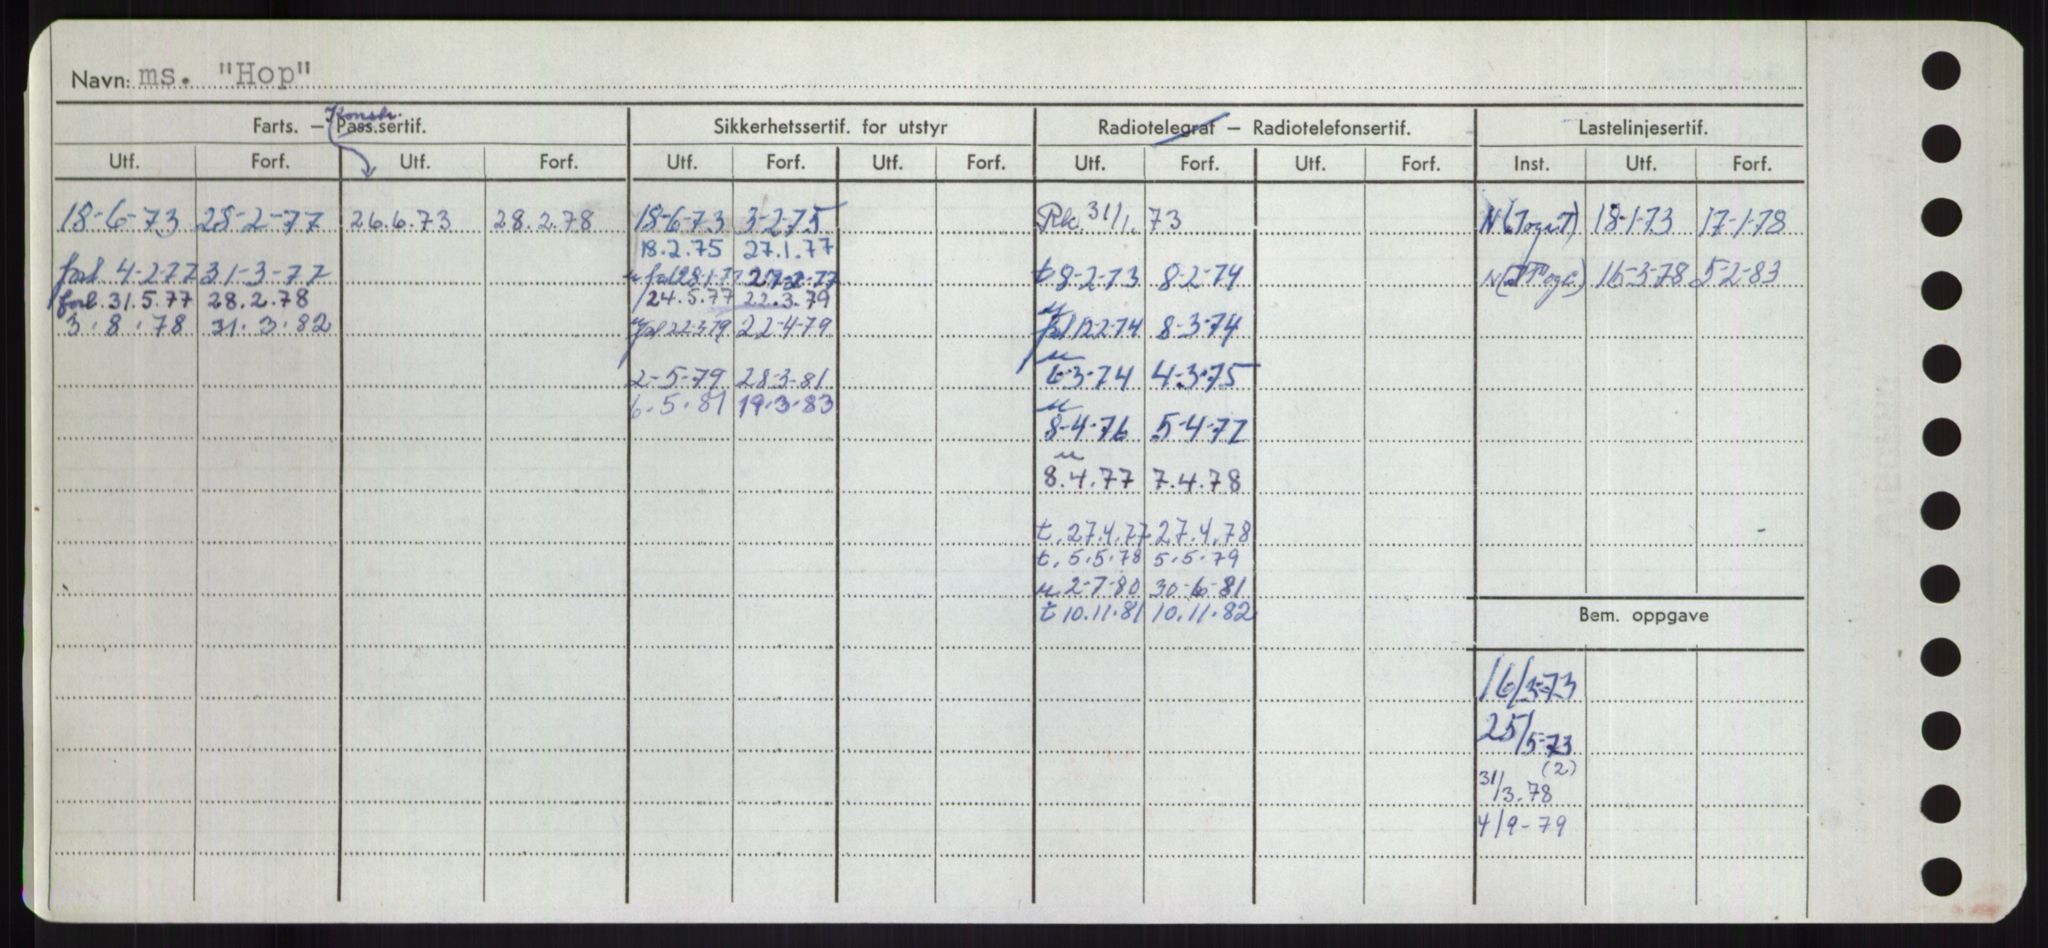 Navn: ms. "Hop"
Konstr.
Farts. — Pass.sertif. Sikkerhetssertif. for utstyr Radiotelegraf — Radiotelefonsertif. Lastelinjesertif.
Utf. Forf. Utf. Forf. Utf. Forf. Utf. Forf. Utf. Forf. Utf. Forf. Inst. Utf. Forf.
18-6-73 28-2-77 26.6.73 28.2.78 18-6-73 3-2-75 Rk. 31/1. 73 18-1-73 17-1-78
18.2.75 27.1.77
forl 4-2-77 31-3-77 t 8-2-73 8-2-74 16-3-78 5-2-83
forl. 31.5.77 28.2.78 24.5.77 22.3.79
3.8.78 31.3.82 forl 22-3-79 22-4-79 forl 12-2-74 8-3-74
2-5-79 28-3-81 6-3-74 4-3-75
6.5.81 19.3.83
8-4-76 5-4-77
8.4.77 7.4.78
t. 27.4.77 27.4.78
t. 5.5.78 5.5.79
u 2-7-80 30-6-81
t 10.11.81 10.11.82
Bem. oppgave
16/3-73
25/5-73
(2)
31/3.78
4/9-79